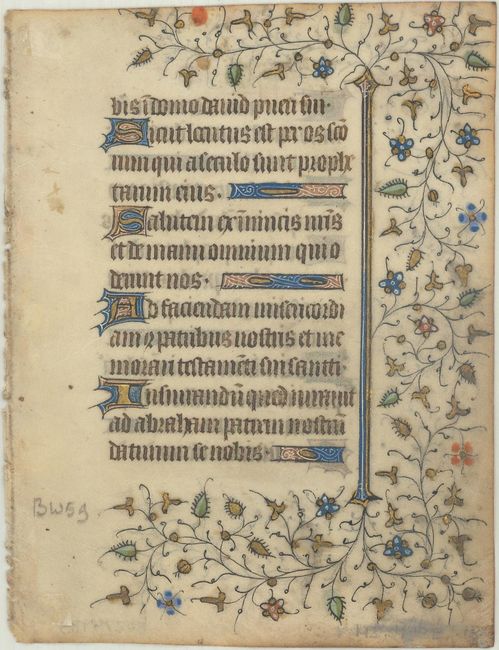 bis ī domo dauid pueri sui·
Sicut locutus est ꝑ os scō
rum qui a seculo sunt prophe
tarum eius·
Salutem ex īimicis nr̄is
et de manu omnium qui o
derunt nos·
Ad faciendam misericordi
am patribus nostris et me
morari testamenti sui sancti·
Iusiurandū quod iurauit
ad abraham patrem nostrū
daturum se nobis·
BW59